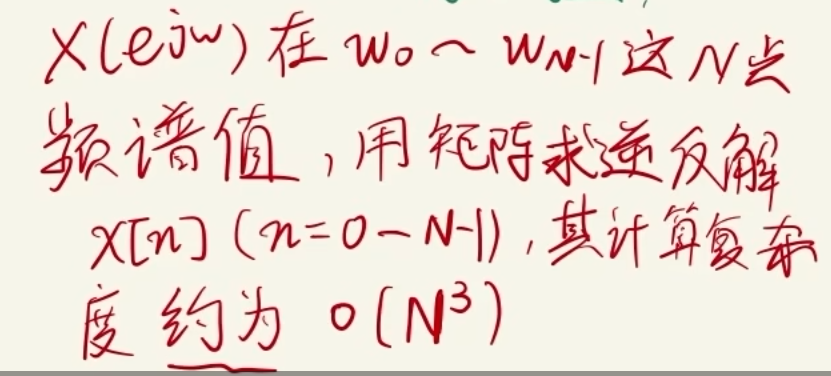 X(e^jw) 在 w₀ ~ w_N-1 这 N 点
频谱值，用矩阵求逆反解
x[n] (n=0-N-1)，其计算复杂
度 约为 o(N³)